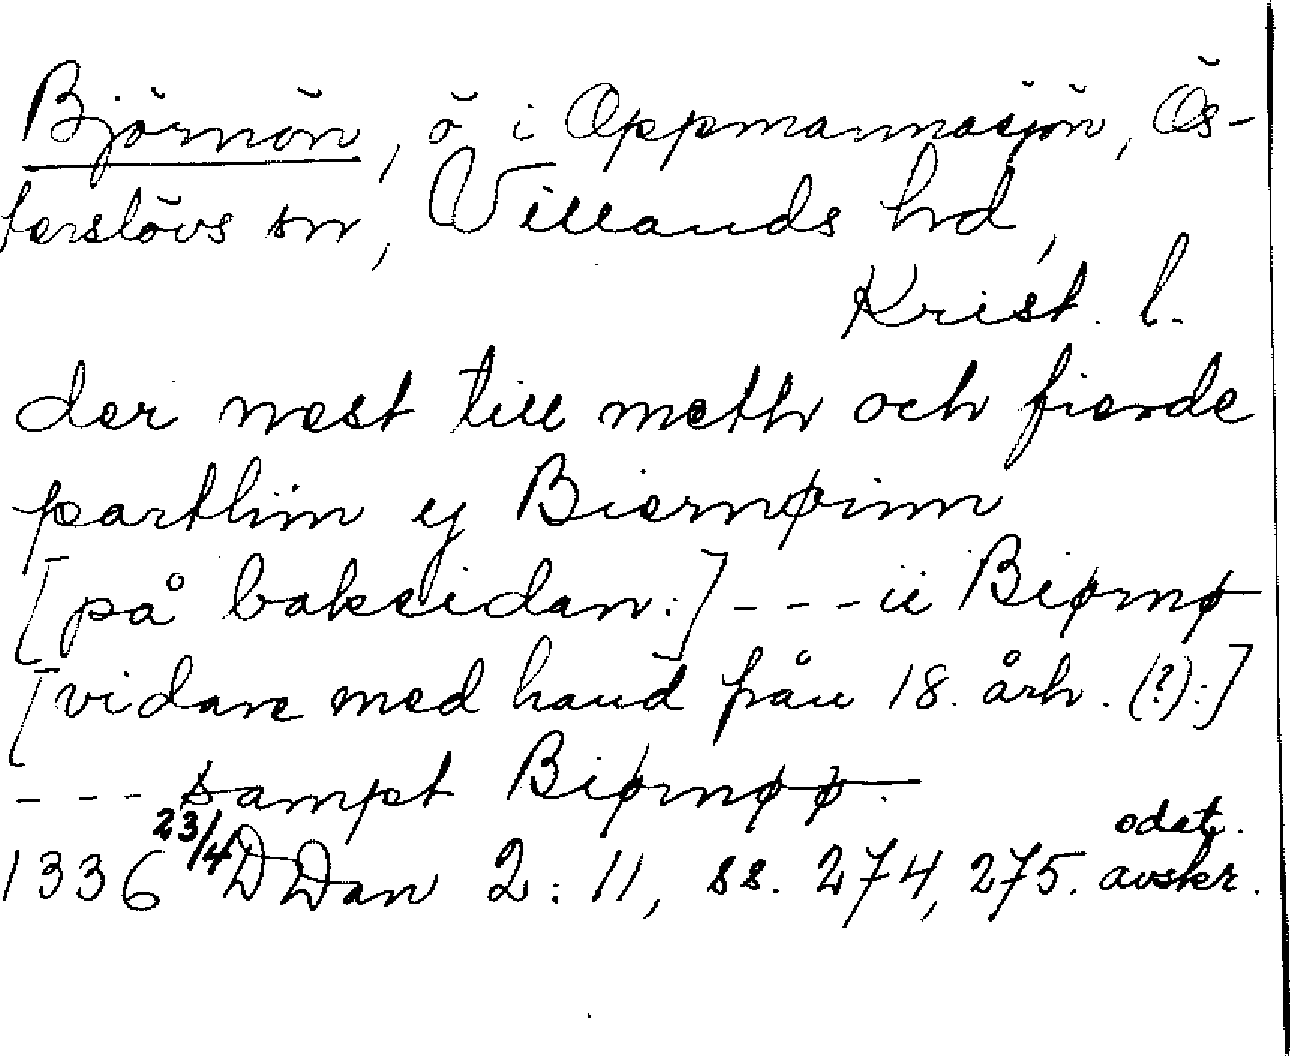 Björnön, ö i Oppmannasjön, Ös-
terslövs sn, Villands hd,
Krist. l.
der nest till meth och fierde
parthin y Biernøinn
[på baksidan:] --- ii Biørnø
[vidare med hand från 18. årh. (?):]
--- sampt Biørnøø.
1336 23/4 DDan 2: 11, ss. 274, 275. odat. avskr.